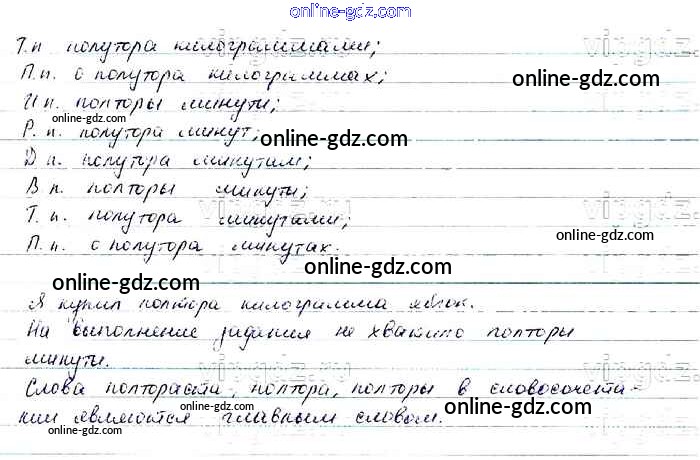 online-gdz.com
Т.п полутора килограммами;
П.п. о полутора килограммах;
online-gdz.com
И п. полторы минуты;
Р. п. полутора минут;
online-gdz.com
Д п. полутра минутам;
В п. полторы минуты;
online-gdz.com
Т. п. полутора минутами;
online-gdz.com
П. п. о полутора минутах.
online-gdz.com
online-gdz.com
Я купил полтора килограмма яблок.
На выполнение задания не хватило полторы
минуты.
Слова полтораста, полтора, полторы в словосочета-
нии являются главным словом.
online-gdz.com
online-gdz.com